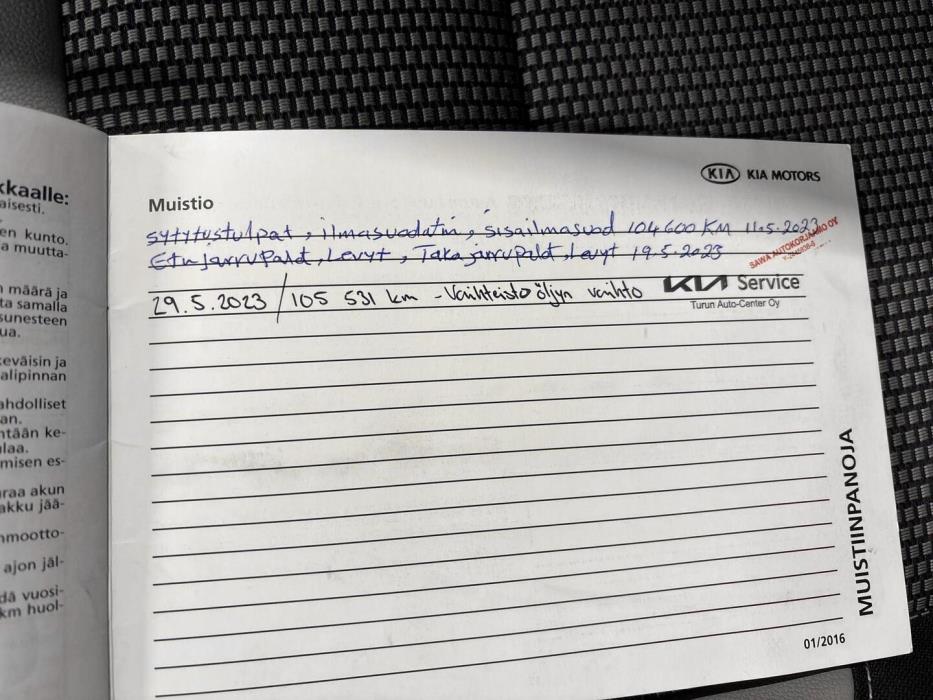 kkaalle:
aisesti.
en kunto.
a muutta-
n määrä ja
ta samalla
sunesteen
ua.
eväisin ja
alipinnan
ahdolliset
an.
ntään ke-
laa.
misen es-
uraa akun
akku jää-
nmootto-
ajon jäl-
dä vuosi-
km huol-
KIA KIA MOTORS
Muistio
sytytustulpat, ilmasuodatin, sisäilmasuod 104600 KM 11.5.2023
Etujarrupalat, Levyt, Takajarrupalat, Levyt 19.5.2023
SAWA AUTOKORJAAMO OY
29.5.2023 / 105 531 km - Vaihteisto öljyn vaihto KIA Service
Turun Auto-Center Oy
MUISTIINPANOJA
01/2016